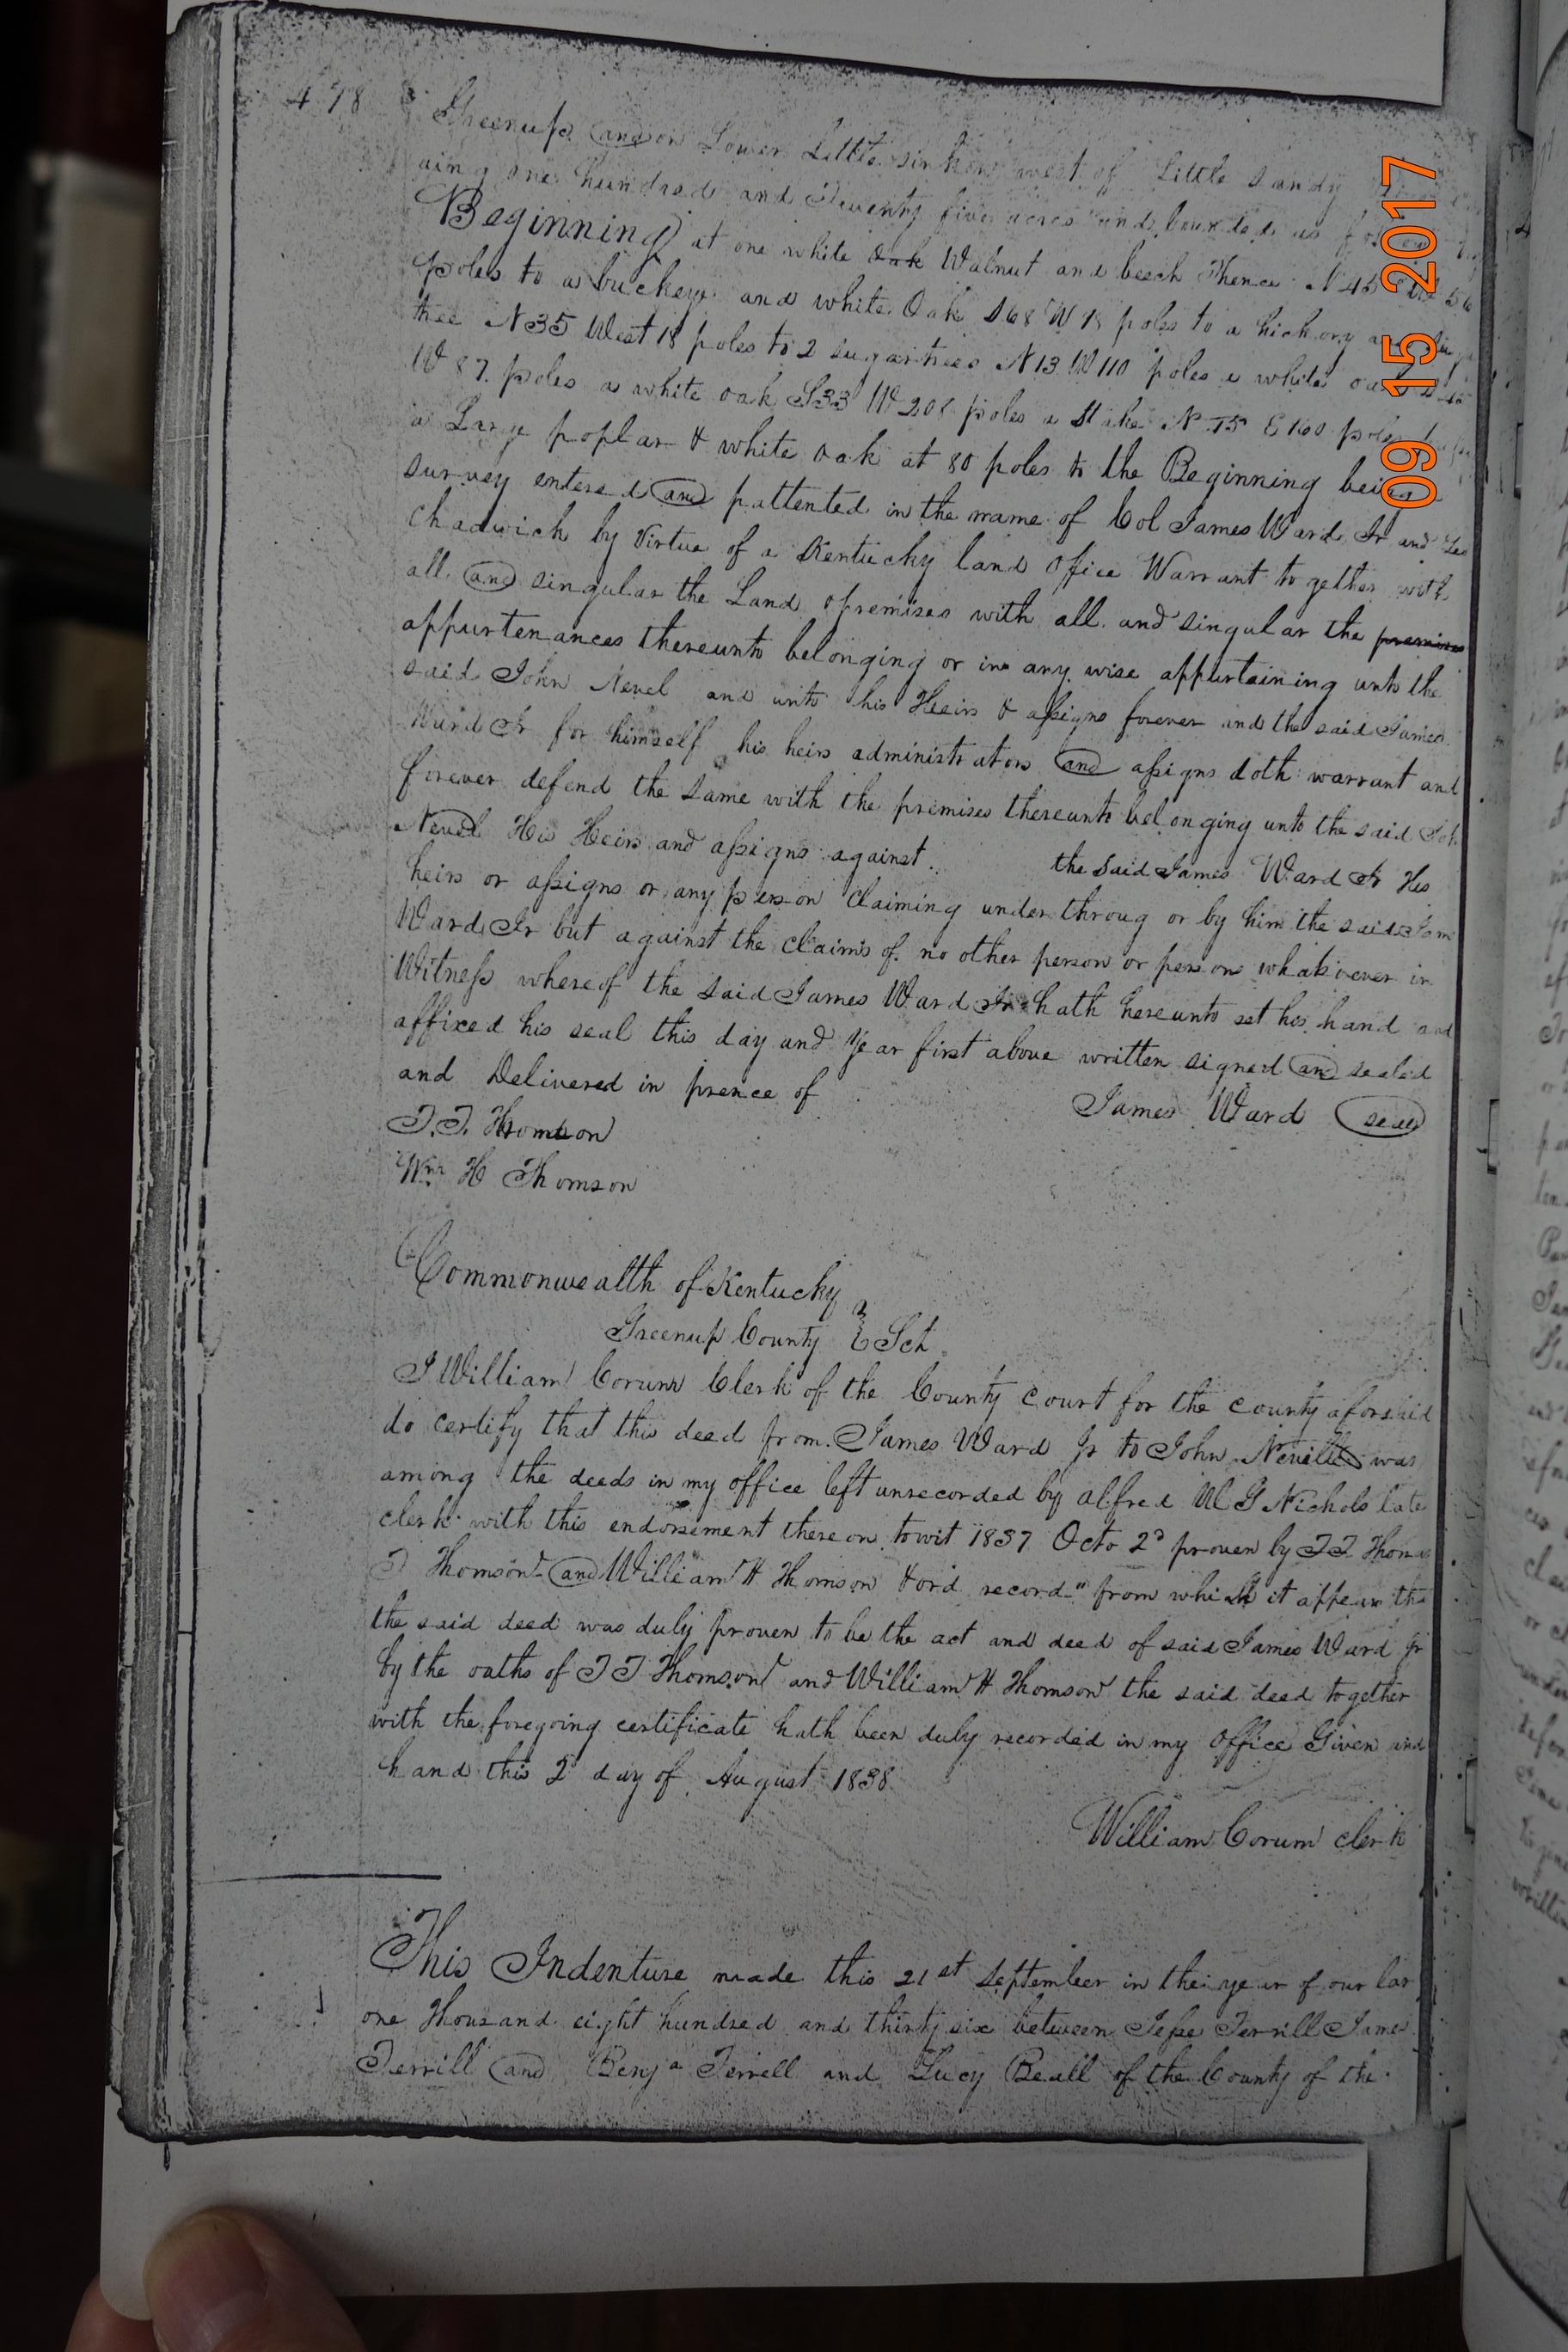 478
Greenup and on Lower Little sinkon west of Little Sandy
aing one hundred and Twenty five acres and bounded as
Beginning at one white oak Walnut and beech Thence N 45 56
poles to a buckeye and white Oak S 68 W 18 poles to a hickory
tree N 35 West 18 poles to 2 sugartrees N 13 W 110 poles a white oak
W 87 poles a white oak S 33 W 208 poles a Stake N 75 E 160 poles
a Large poplar & white oak at 80 poles to the Beginning being
survey entered and pattented in the name of Col James Ward Jr and
Chadwick by Virtue of a Kentucky land Office Warrant together with
all and singular the Land premises with all and singular the premises
appurtenances thereunto belonging or in any wise appurtaining unto the
said John Nevel and unto his Heirs & assigns forever and the said James
Ward Jr for himself his heirs administrators and assigns doth warrant and
forever defend the same with the premises thereunto belonging unto the said Joh
Nevel His Heirs and assigns against the said James Ward Jr His
heirs or assigns or any person Claiming under throug or by him the said Jam
Ward Jr but against the claims of no other person or persons whatsoever in
Witness whereof the said James Ward Jr hath hereunto set his hand and
affixed his seal this day and Year first above written signed and sealed
and Delivered in prence of James Ward seal
T. T. Thomson
Wm H Thomson
Commonwealth of Kentucky
Greenup County Sct
I William Corum Clerk of the County Court for the County aforsaid
do certify that this deed from James Ward Jr to John Neville was
among the deeds in my office left unrecorded by Alfred W G Nichols late
clerk with this endorsement thereon towit 1837 Octo 2d proven by T T Thoms
T Thomson and William H Thomson & ord record" from which it appears tha
the said deed was duly proven to be the act and deed of said James Ward Jr
by the oaths of T T Thomson and William H Thomson the said deed together
with the foregoing certificate hath been duly recorded in my Office Given und
hand this 2d day of August 1838
William Corum clerk
This Indenture made this 21st September in the year of our lor
one Thousand eight hundred and thirty six between Jesse Terrill James
Terrill and Benja Terrell and Lucy Beall of the County of the
09 15 2017